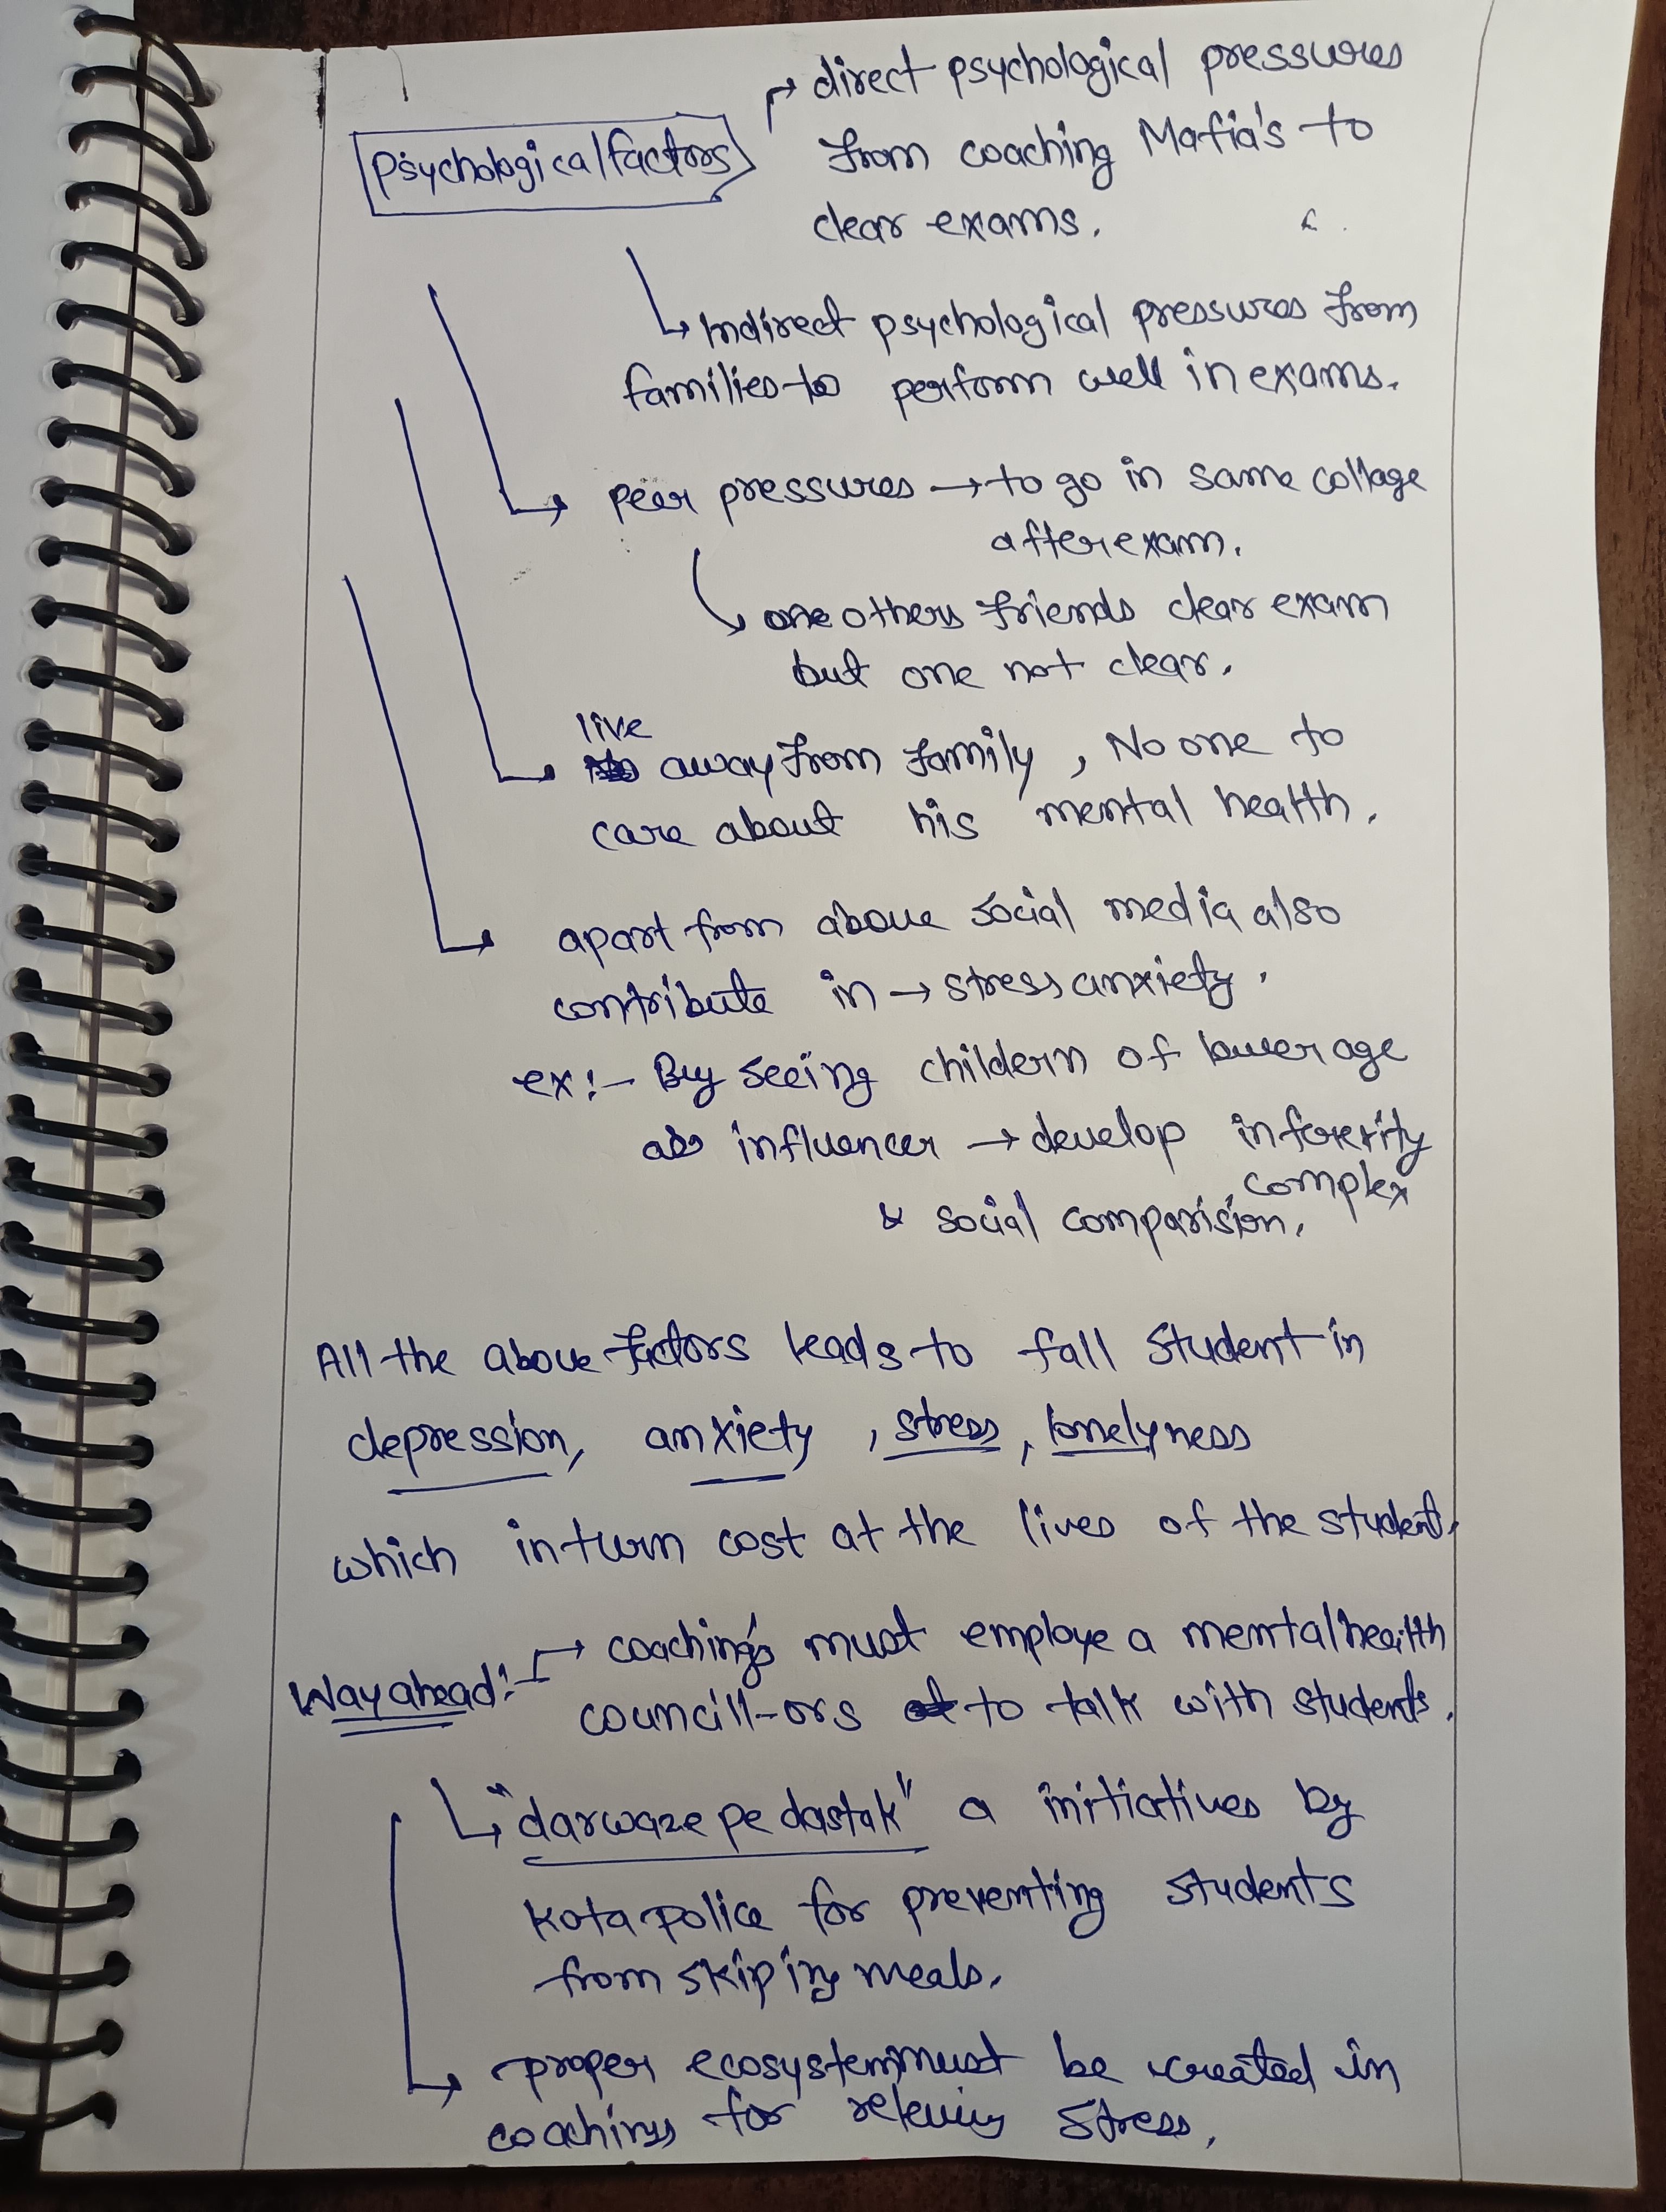 Psychological factors → direct psychological pressures
from coaching Mafia's to
clear exams.
↳ Indirect psychological pressures from
families to perform well in exams.
→ peer pressures → to go in same collage
after exam.
↘ one others friends clear exam
but one not clear.
live
→ away from family, No one to
care about his mental health.
→ apart from above social media also
contribute in → stress anxiety.
ex:- By seeing childern of lower age
as influencer → develop inferority
complex
& social comparision.
All the above factors leads to fall student in
depression, anxiety, stress, lonelyness
which inturn cost at the lives of the student.
Way ahead:- → coaching's must employe a mental health
councill-ors to talk with students.
↳ "darwaze pe dastak" a initiatives by
Kota police for preventing students
from skiping meals.
→ proper ecosystem must be created in
coachings for releiving stress.